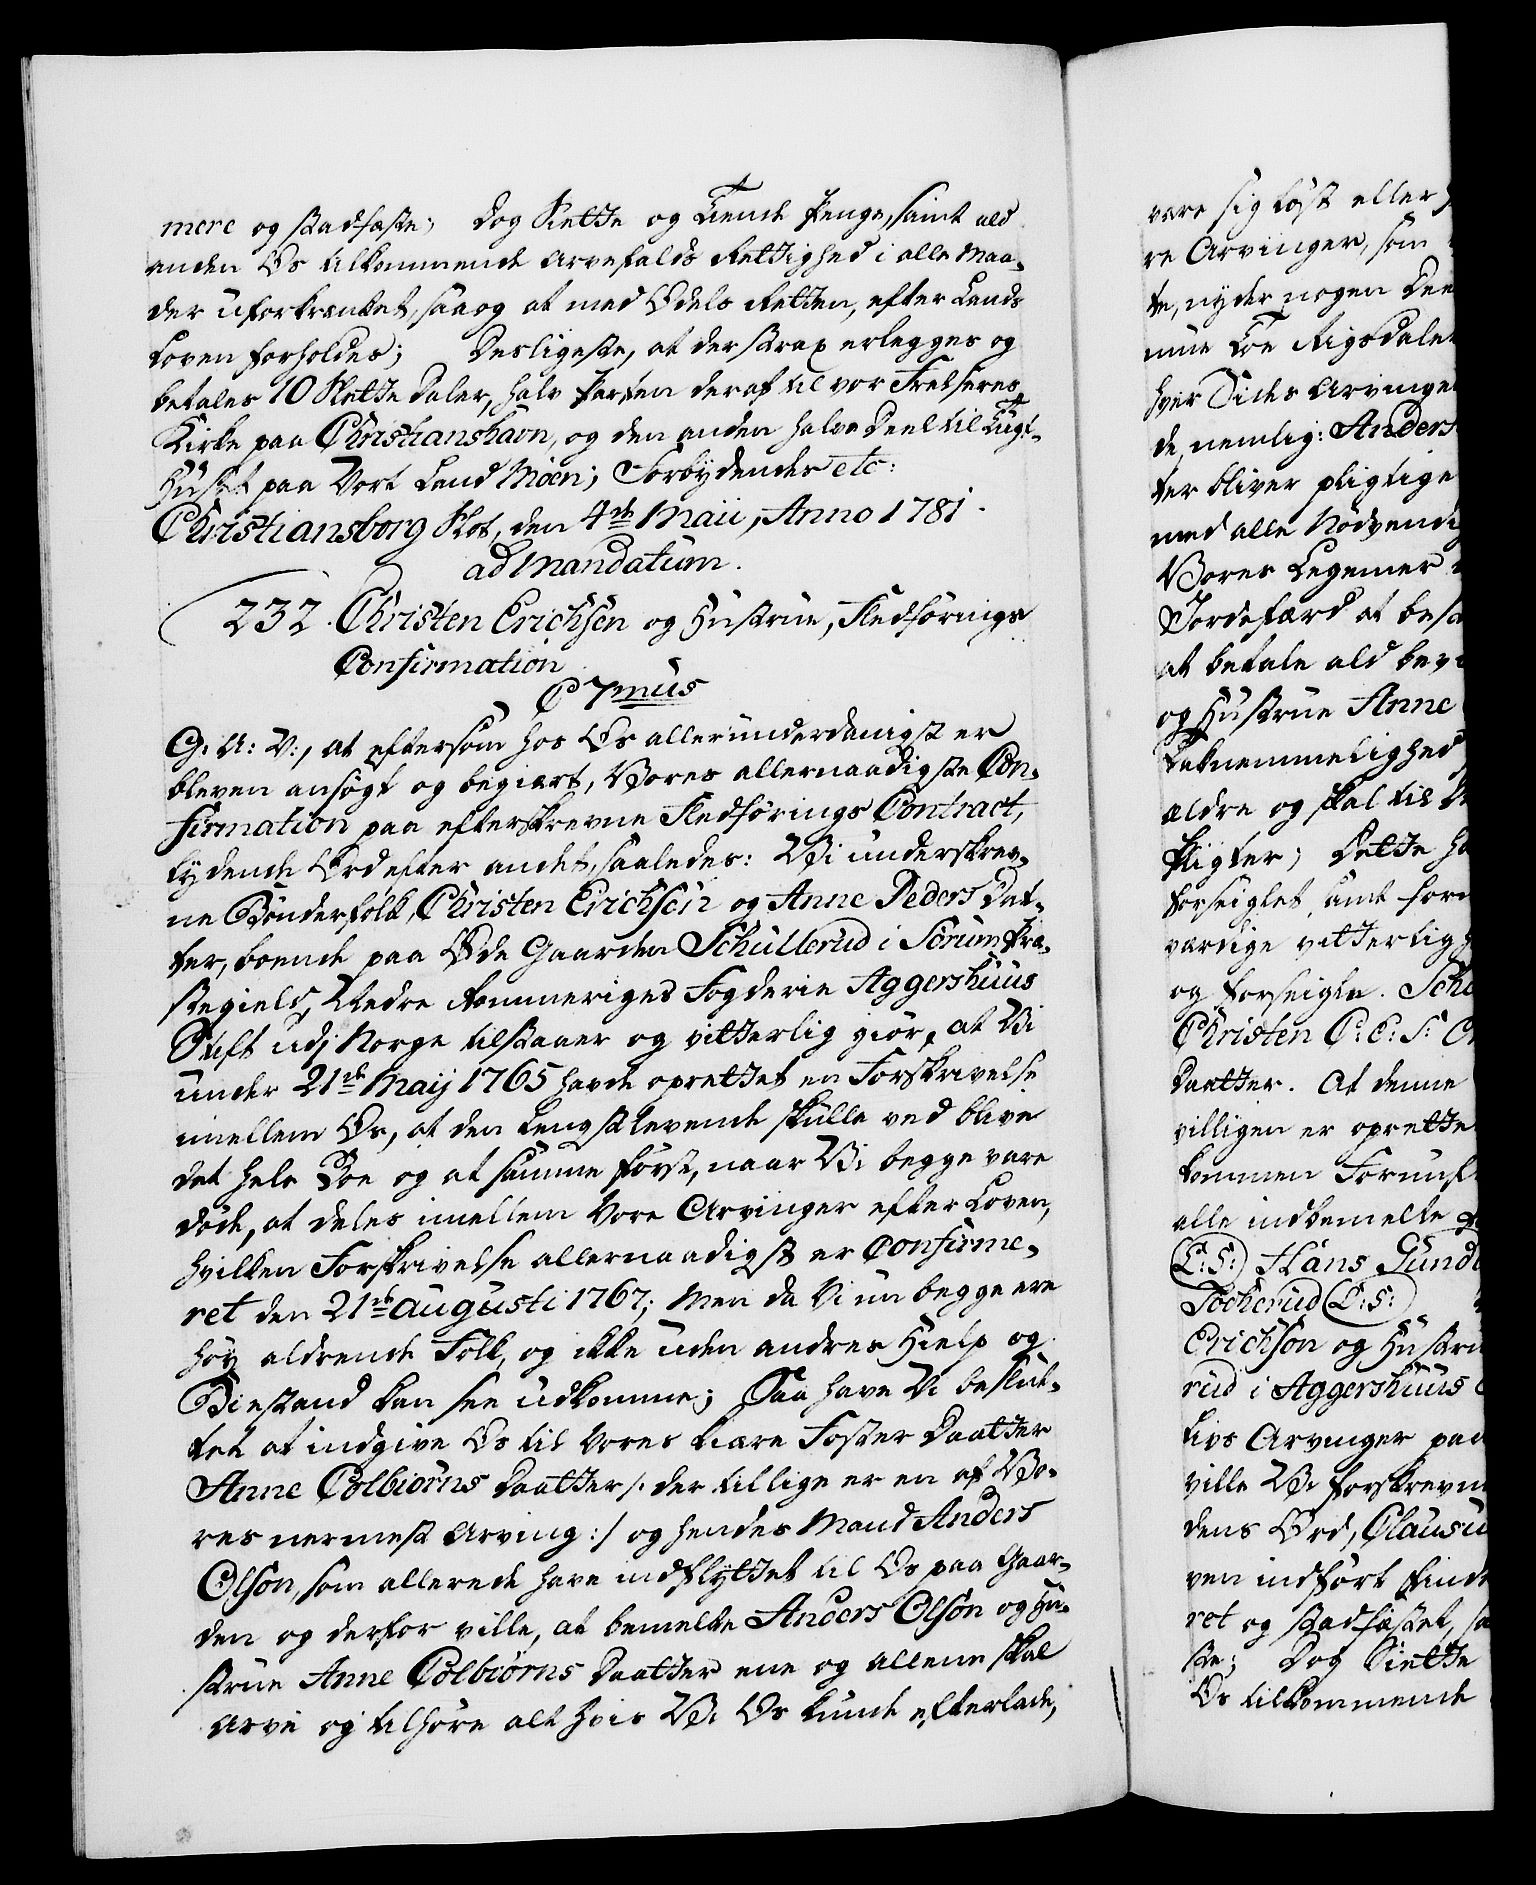 mere og stadfæste; Dog Siette og Tiende Penge, samt ald
anden Os tilkommende Arvefalds Rettighed i alle Maa-
der uforkrænket, saa og at med Odels Retten, efter Lands
Loven forholdes; Desligeste, at der strax erlegges og
betales 10 Slette Daler, halv Parten deraf til vor Frelseres
Kirke paa Christianshavn, og den anden halve Deel til Tugt-
Huset paa Vort Land Möen; Forbydendes etc:
Christiansborg Slot, den 4de Maii, Anno 1781.
ad Mandatum.
232. Christen Erichsen og Hustrue, Fledförings
Confirmation
C 7mus
G: A: V:, at eftersom hos Os allerunderdanigst er
bleven ansögt og begiært, Vores allernaadigste Con-
firmation paa efterskrevne Fledförings Contract,
lydende Ord efter andet, saaledes: Vi underskrev-
ne Bönderfolk, Christen Erichsön og Anne Peders Dat-
ter, boende paa Öde Gaarden Schullerud i Sörum Præ-
stegield, Nedre Rommeriges Fogderie Aggershuus
Stift udj Norge tilstaaer og vitterlig giör, at Vi
under 21de Maij 1765 havde oprettet en Forskrivelse
imellem Os, at den Lengstlevende skulle ved blive
det hele Boe og at samme först, naar Vi begge vare
döde, at deles imellem Vore Arvinger efter Loven,
hvilken Forskrivelse allernaadigst er Confirme-
ret den 21de Augusti 1767; Men da Vi nu begge ere
höy aldrende Folk, og ikke uden andres Hielp og
Biestand kan see udkomme; Saa have Vi beslut-
tet at indgive Os til Vores kiære Foster Daatter
Anne Colbiörns Daatter /: der tillige er en af Vo-
res nermest Arving :/ og hendes Mand Anders
Olsön, som allerede have indflyttet til Os paa Gaar-
den og derfor ville, at bemelte Anders Olsön og Hu-
strue Anne Colbiörns Daatter ene og allene skal
arve og tilhöre alt hvis Vi Os kunde efterlade,
være sig löst eller
re Arvinger, som
te, nyder nogen Dee
mue Toe Rigsdaler
hver Sides Arvinger
de, nemlig: Anders
ter bliver pligtige
med alle Nödvendig
Vores Legemer
Jordefærd at besø
at betale ald bevi
og Hustrue Anne
Taknemmelighed
ældre og skal til
Pligter; Dette ha
forseiglet, samt form
værdige vitterligh
og forseigle. Schu
Christen C: E: S:
Daatter. At denne
villigen er oprette
kommen Fornuft
alle indbemelte
(L: S:) Hans Gund
Tocherud (L: S:)
Erichsön og Hustru
rud i Aggershuus
Livs Arvinger paa
ville Vi forskrevne
dens Ord, Clausu
ven indfört finde
ret og stadfæstet, sa
ste; Dog Siette
Os tilkommende